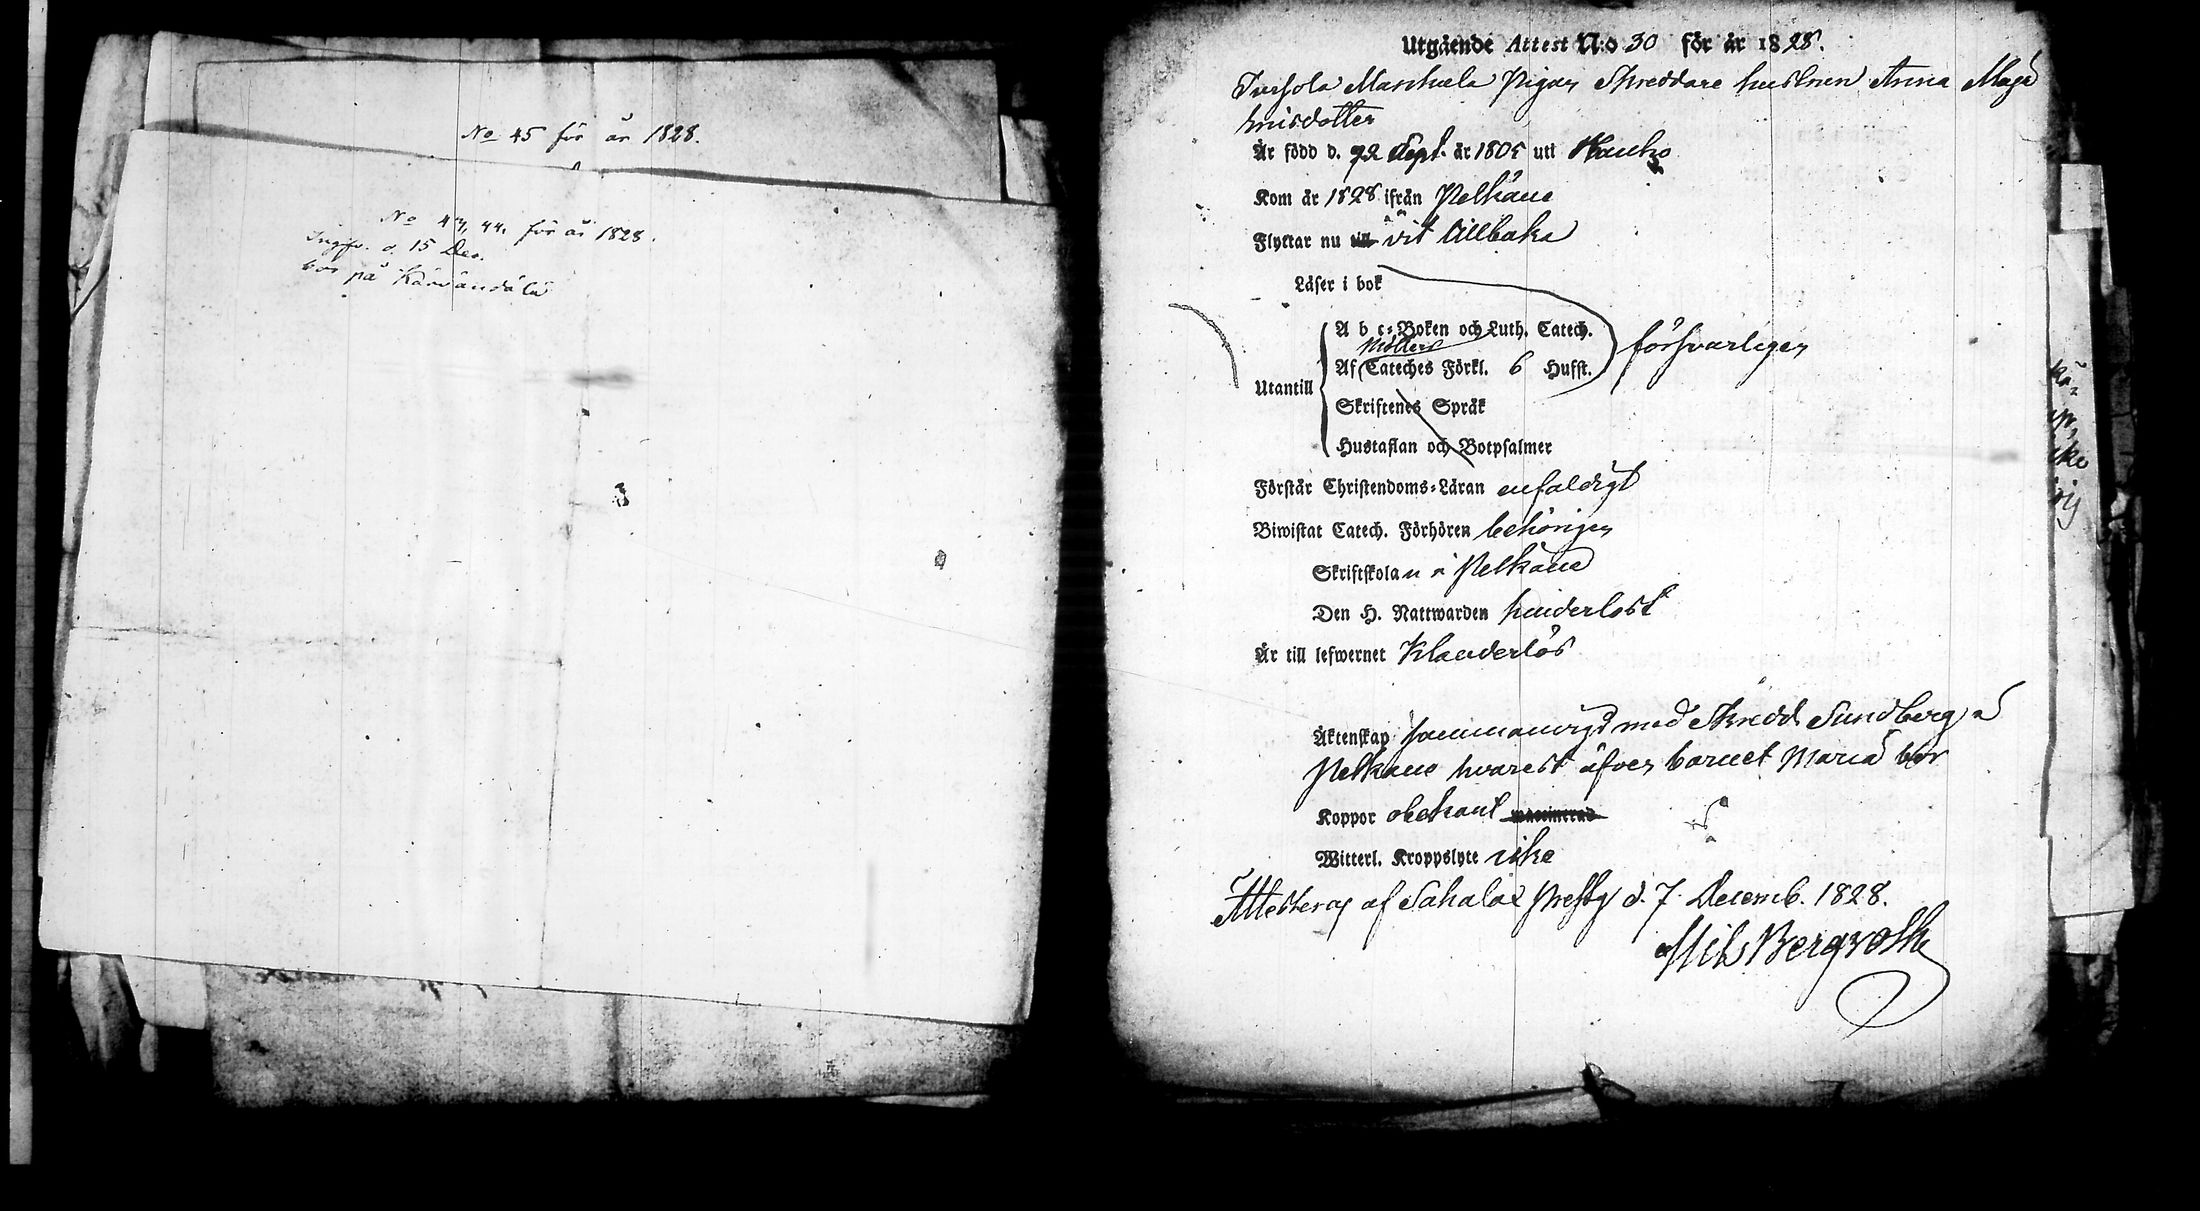 No 45 för år 1828.
No 43, 44. för år 1828.
Ingifv. d. 15 Dec.
bor på
Utgående Attest N:o 30 för år 1828.
Pigan Skreddare hustrun Anna Mag
nusdotter
Är född d. 22 Sept. år 1805 uti Hauho
Kom år 1828 ifrån Pelkäne
Flyttar nu till dit tillbaka
Läser i bok
A b c-Boken och Luth. Catech.
Möllers
försvarligen
Af Cateches Förkl. 6 Hufst.
Utantill
Skriftenes Språk
Hustaflan och Botpsalmer
Förstår Christendoms-Läran enfaldigt
Biwistat Catech. Förhören behörigen
Skriftskolan i Pelkäne
Den H. Nattwarden hinderlöst
Är till lefwernet Klanderlös
Äktenskap sammanvigd med Skredd Sundberg i
Pelkäne hvarest äfven barnet Maria bor
Koppor obekant waccinerad
Witterl. Kroppslyte icke
Attesteras af Sahalax d. 7 Decemb. 1828.
Nils Bergroth